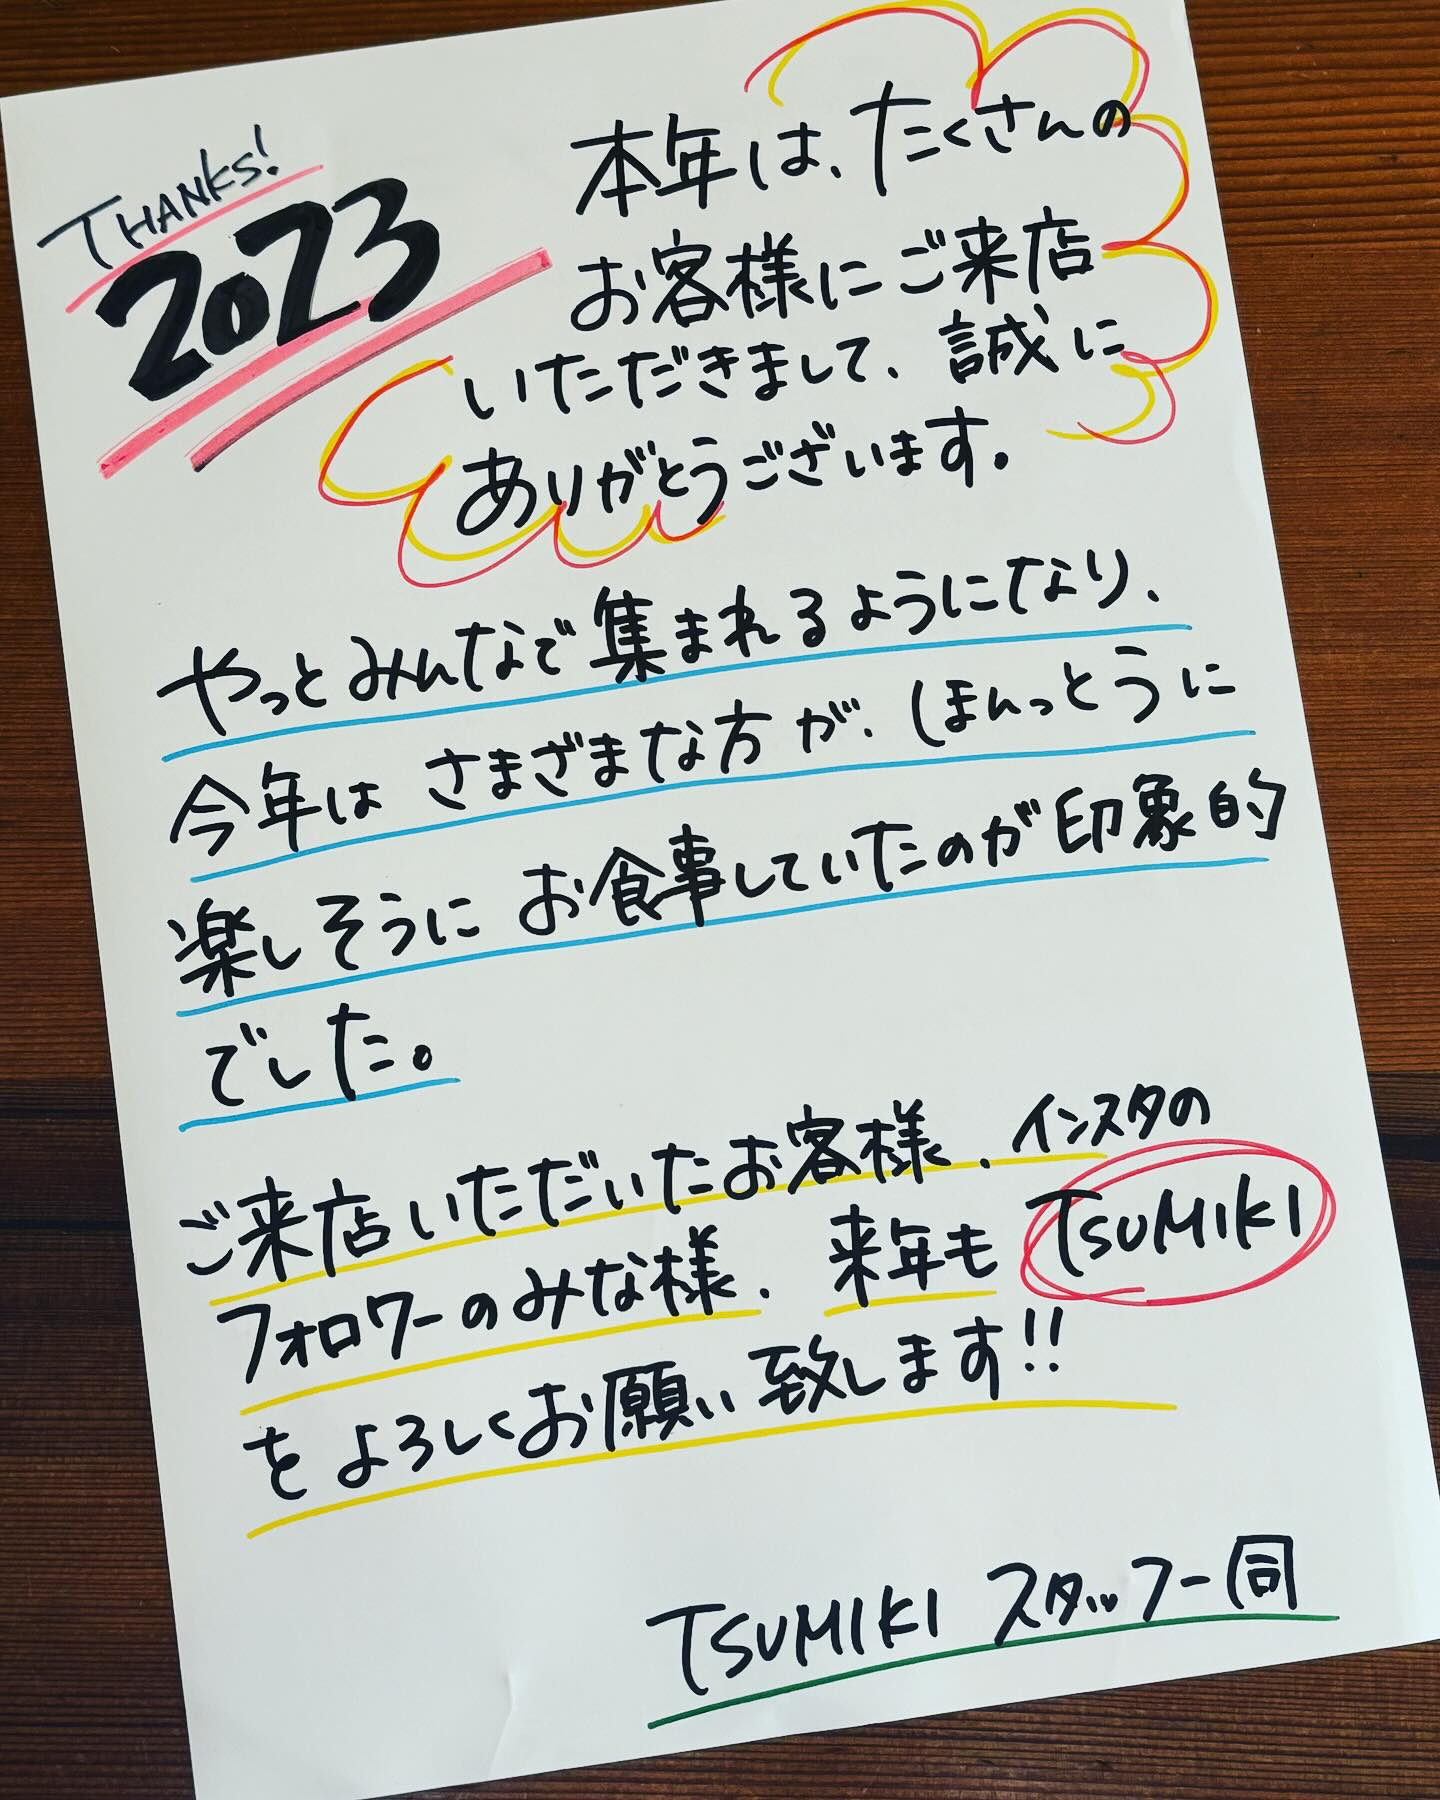 THANKS!
2023
本年は、たくさんの
お客様にご来店
いただきまして、誠に
ありがとうございます。
やっとみんなで集まれるようになり、
今年は さまざまな方が、ほんっとうに
楽しそうに お食事していたのが印象的
でした。
ご来店いただいたお客様、インスタの
フォロワーのみな様、来年も TSUMIKI
をよろしくお願い致します!!
TSUMIKI スタッフ一同